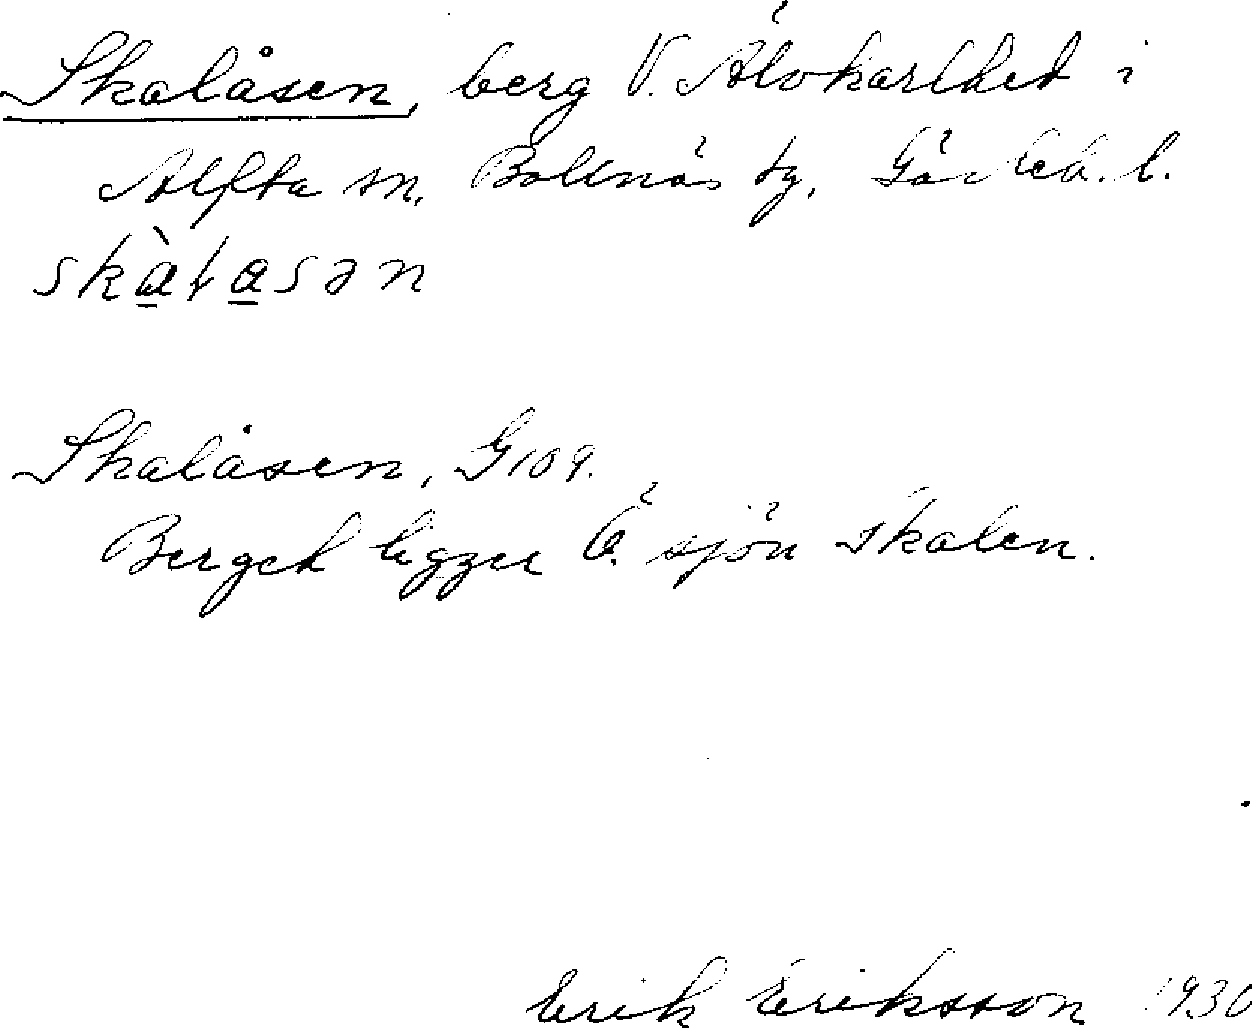 Skalåsen, berg V. Älvkarlhed i
Alfta sn, Bollnäs tg, Gävleb. l.
skàḷasən
Skalåsen, G 109.
Berget ligger Ö. sjön Skalen.
Erik Eriksson 1930